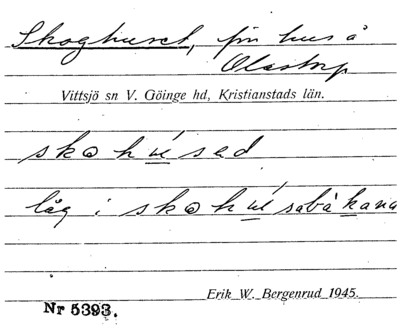 Skoghuset, f̶ör hus å
Olastorp
Vittsjö sn V. Göinge hd, Kristianstads län.
skohúsed
låg i skohúsabåkana
Erik W. Bergenrud 1945.
Nr 5393.